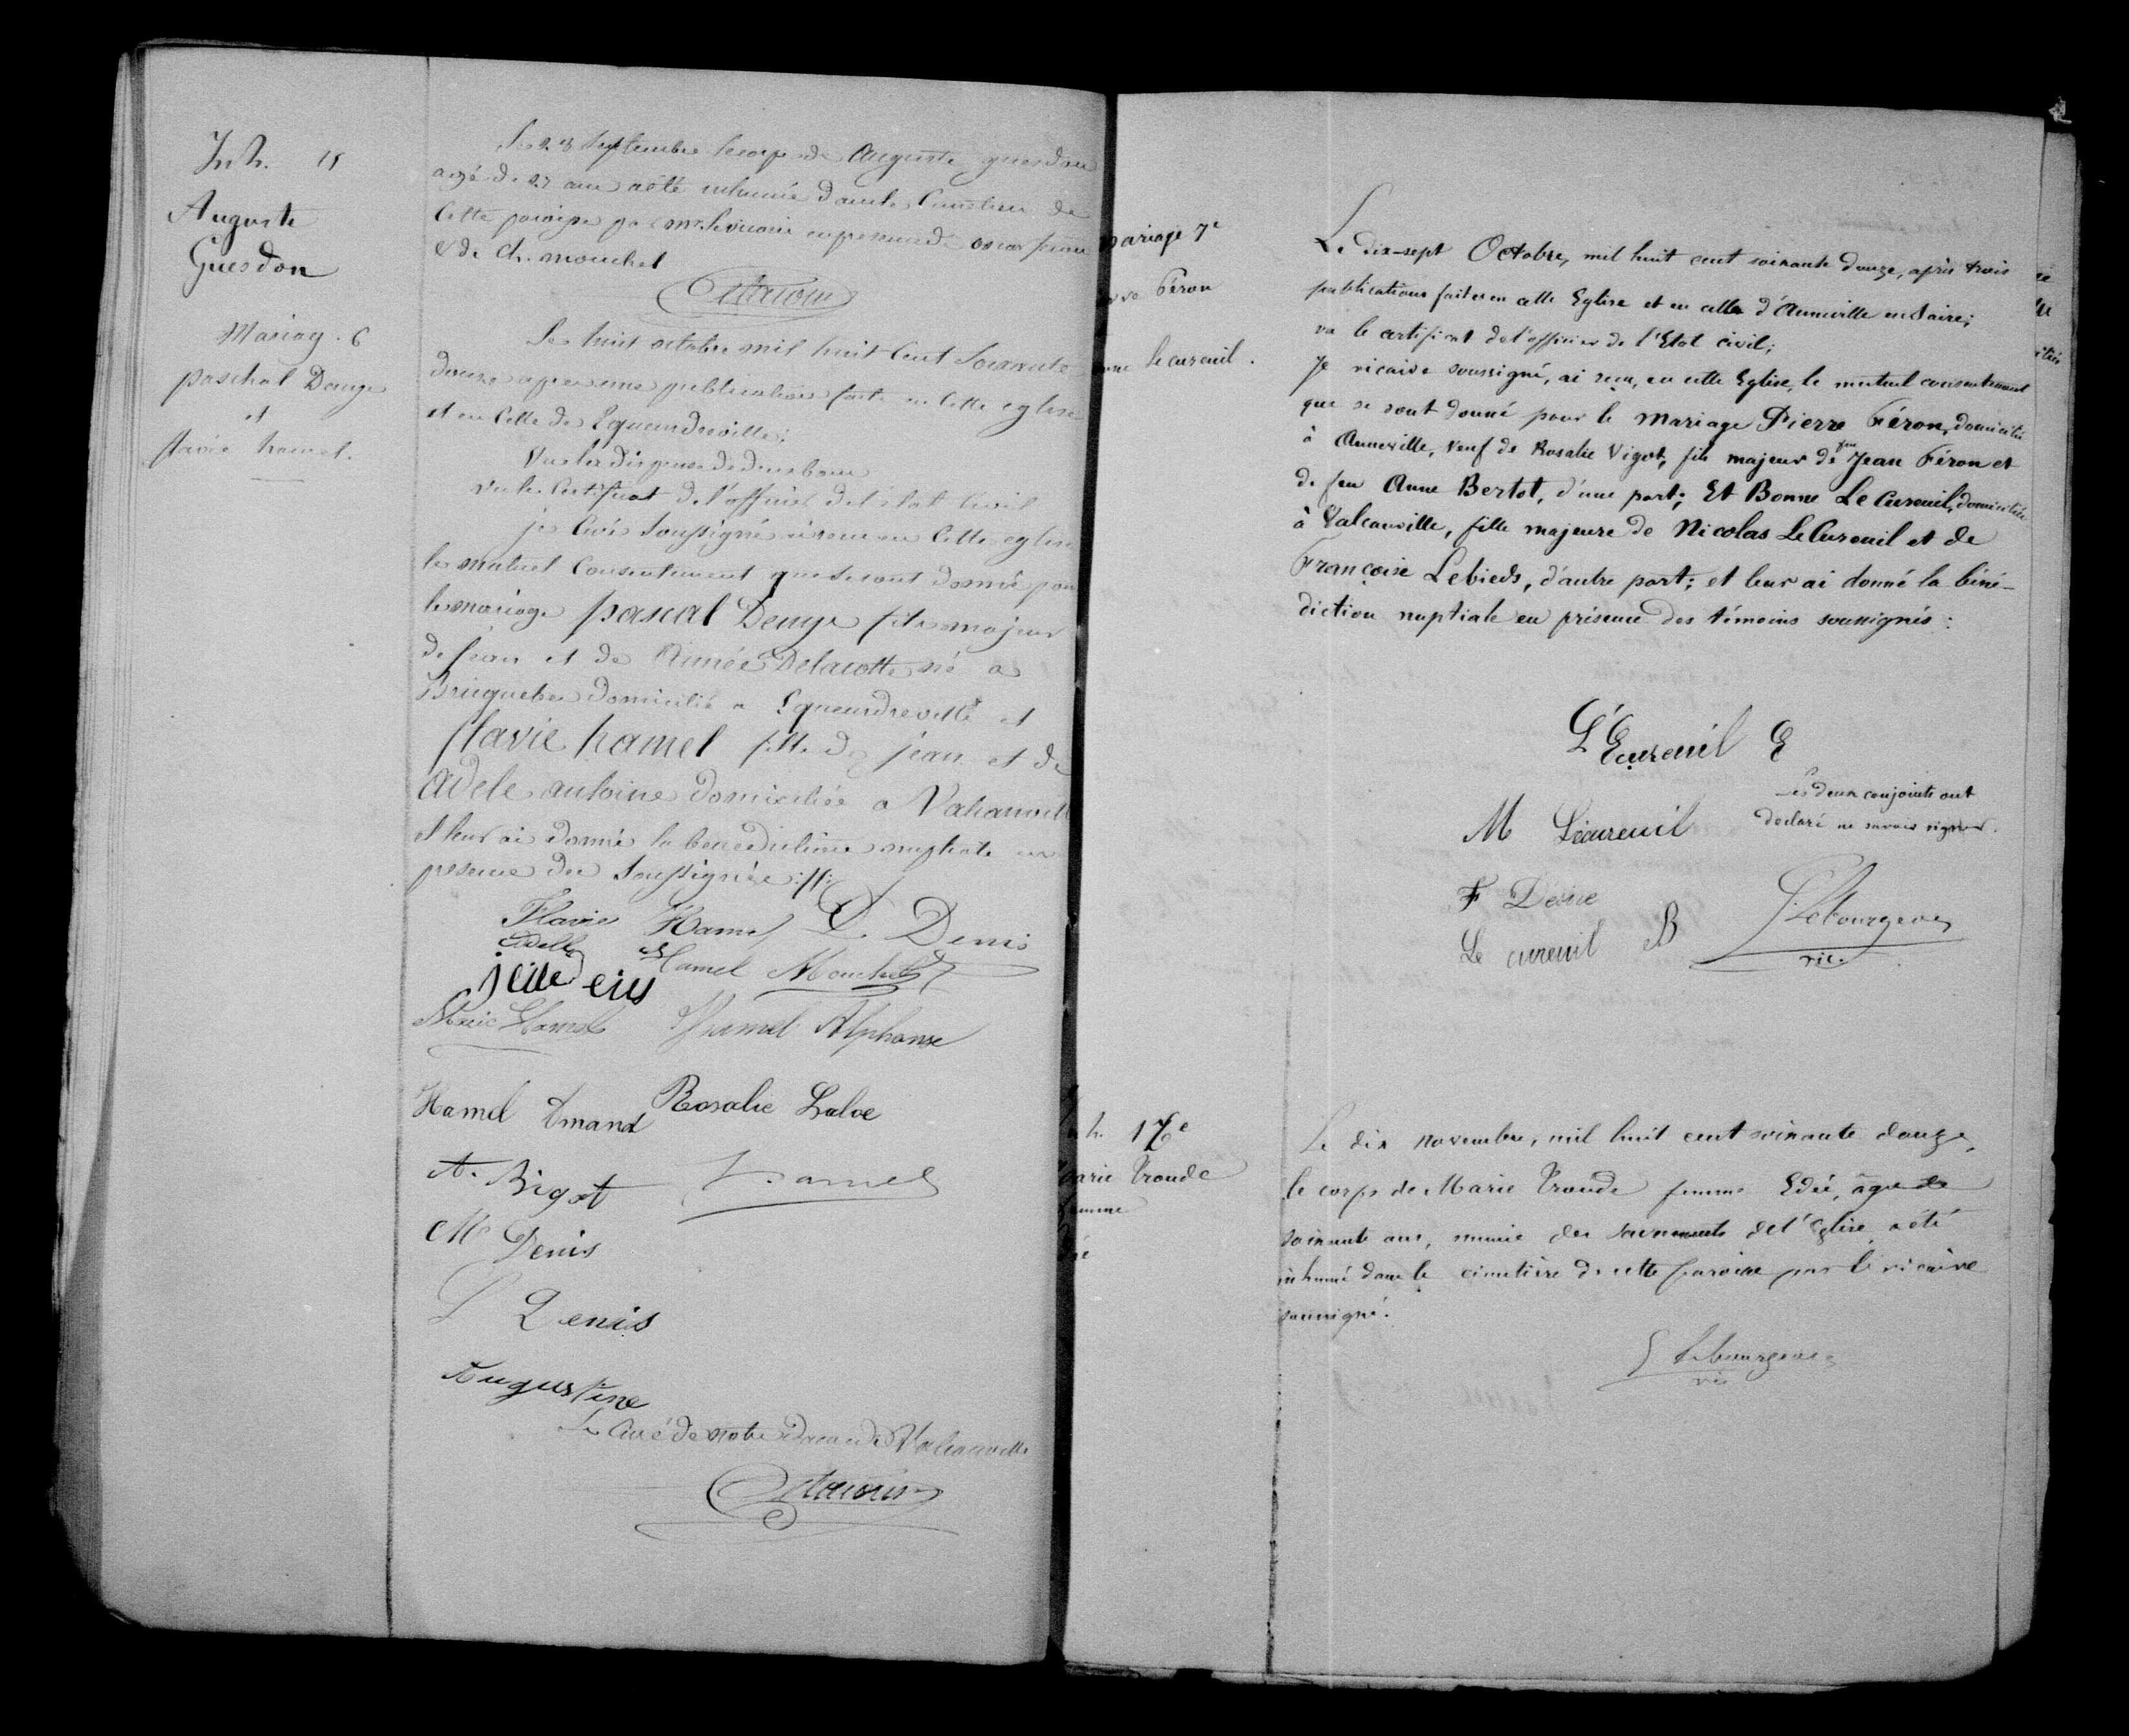 Inh. 15
Auguste
Guesdon
Mariag. 6
paschal Denye
et
flavie hamel.
Le 23 septembre le corps de Auguste guesdon
agé de 27 ans a été inhumé dans le Cimetiere de
Cette paroisse par Mr le vicaire en presence de
& de Ch. mouchel
Le huit octobre mil huit Cent Soixante
douze apres une publication faite en Cette eglise
et en Celle de Equeurdreville;
Vu les dispense de deux bans
vu le Certificat de l'officier de l'état Civil
je Curé Soussigné ai recu en Cette eglise
le mutuel Consentement que se sont donné pour
le mariage pascal Denye fils majeur
de jean et de Aimée Delacotte né a
Bricquebec domicilié a Equeurdreville et
flavie hamel fille de jean et de
adele antoine domiciliée a Valcanville
et leur ai donné la benediction nuptiale en
presence des Soussignés ://:
Flavie Hamel D. Denis
Adelle Hamel Mouchel
Marie Hamel Hamel Alphonse
Hamel Amand Rosalie Laloe
A. Bigot Hamel
M Denis
L Denis
Augustine
Le Curé de notre Dame de Valcanville
mariage 7e
Féron
Le cureuil.
Le dix-sept Octobre, mil huit cent soixante douze, après trois
publications faites en cette Eglise et en celle d'Anneville en Saire;
vu le certificat de l'officier de l'Etat civil;
Je vicaire soussigné, ai reçu, en cette Eglise, le mutuel consentement
que se sont donné pour le mariage Pierre Féron, domicilié
à Anneville, veuf de Rosalie Vigot, fils majeur de feu Jean Féron et
de feu Anne Bertot, d'une part; Et Bonne Le Cureuil, domiciliée
à Valcanville, fille majeure de Nicolas Le Cureuil et de
Françoise Lebieds, d'autre part; et leur ai donné la béné-
diction nuptiale en présence des témoins soussignés:
L'Ecureuil E
Les deux conjoints ont
déclaré ne savoir signer.
M Lécureuil
F Desire
Le cureuil B
Lebourgeois
vic.
Inh. 16e
Marie Troude
femme
Le dix novembre, mil huit cent soixante douze,
le corps de Marie Troude femme Edié, âgée de
soixante ans, munie des sacrements de l'Eglise a été
inhumé dans le cimetière de cette paroisse par le vicaire
soussigné.
Lebourgeois
vic